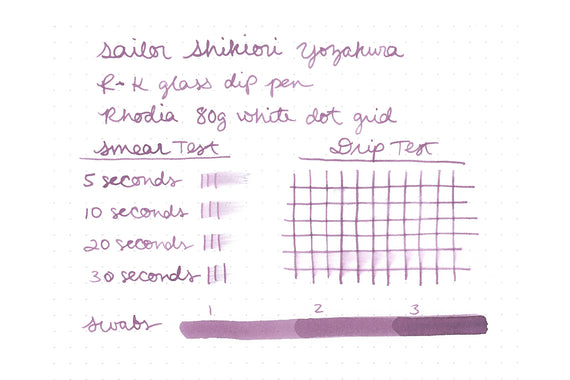 Sailor Shikiori Yozakura
R-K glass dip pen
Rhodia 80g white dot grid
Smear Test
Drip Test
5 seconds
10 seconds
20 seconds
30 seconds
1 2 3
swabs